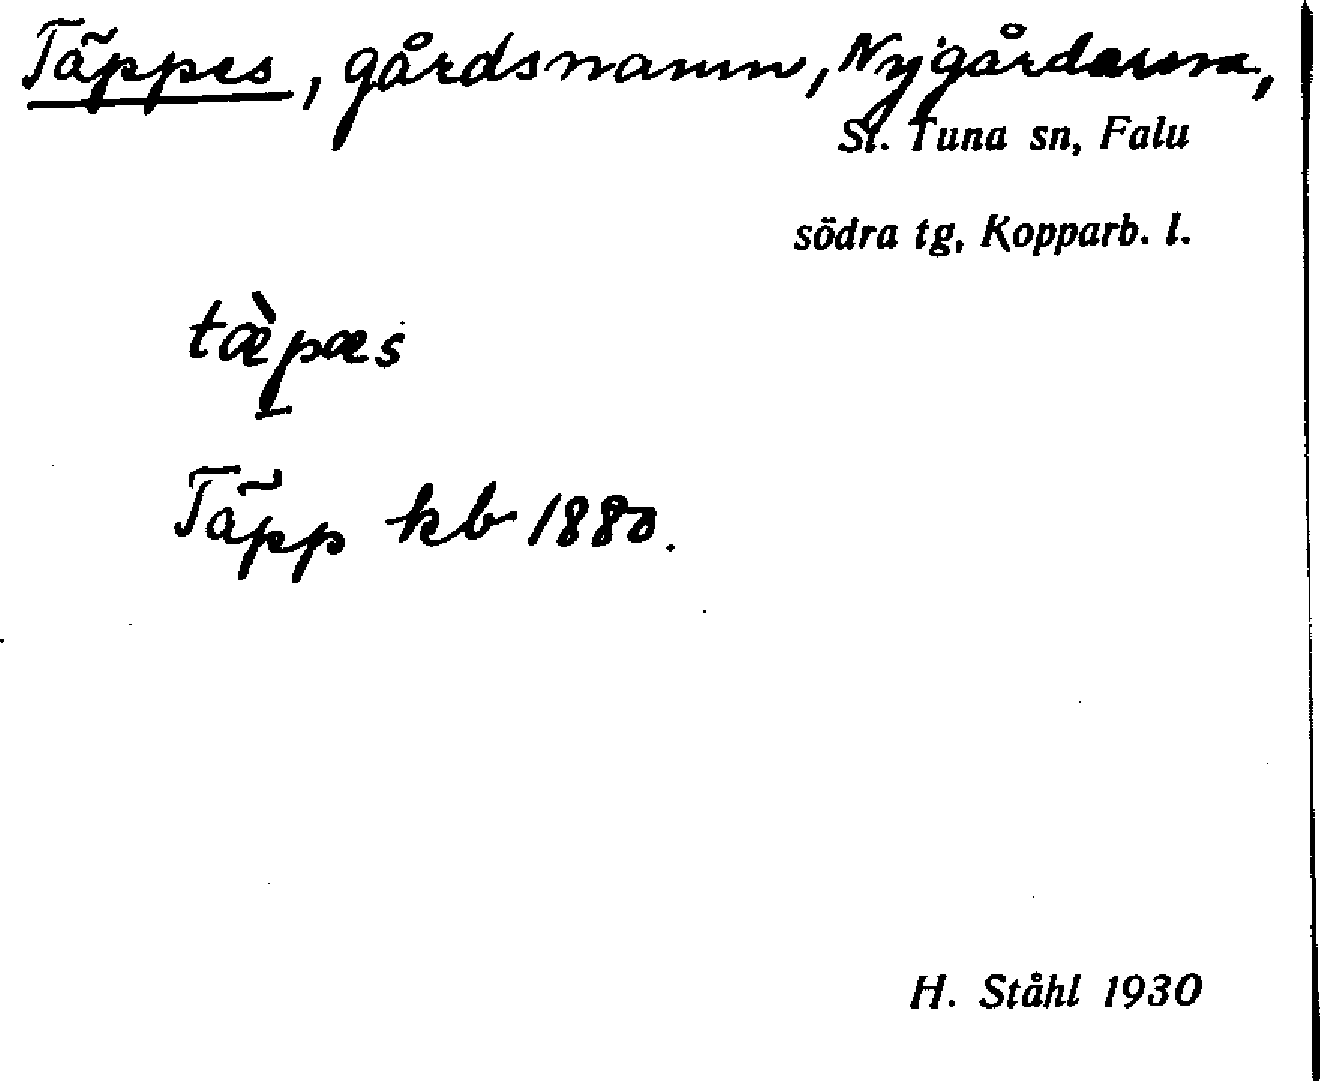 Täppes, gårdsnamn, Nygårdarna,
St. Tuna sn, Falu
södra tg, Kopparb. l.
tæ̀pæs
Täpp kb 1880.
H. Ståhl 1930